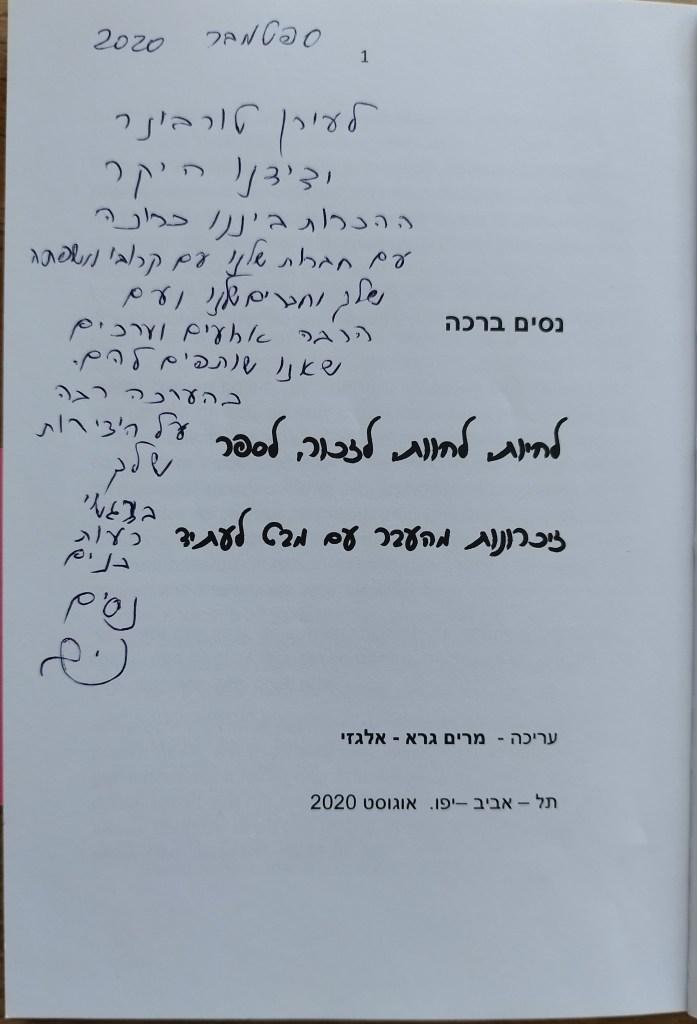 ספטמבר 2020
1
לעירן טורבינר
ידידנו היקר
ההכרות ביננו כרוכה
עם חברות שלנו עם קרובי משפחה
שלך וחברים שלנו ועם
הרבה ארועים וערכים
שאנו שותפים להם.
בהערכה רבה
על היצירות
שלך
רעות
נסים
נסים ברכה
לחיות, לחוות, לזכור, לספר
זיכרונות מהעבר עם מבט לעתיד
עריכה - מרים גרא - אלגזי
תל – אביב –יפו. אוגוסט 2020